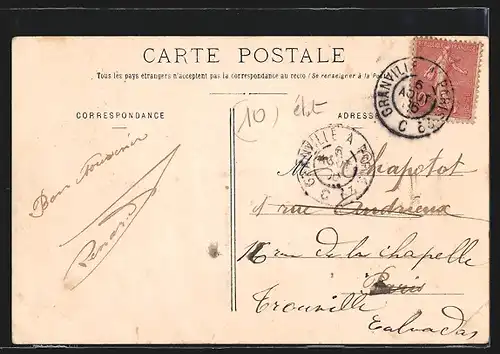 CARTE POSTALE
Tous les pays étrangers n'acceptent pas la correspondance au recto (Se renseigner à la
CORRESPONDANCE
ADRESSE
(10)
GRANVILLE
6
AOUT
C
GRANVILLE A
6
C
Bon Souvenir
Chapotot
rue Andrieux
rue de la chapelle
Paris
Trouville
Calvados